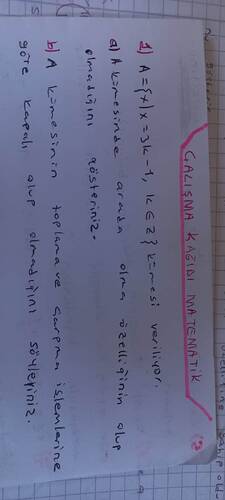 ÇALIŞMA KAĞIDI MATEMATİK
1) A={x|x=3k-1, k∈Z} kümesi veriliyor.
a) A kümesinde arada olma özelliğinin olup
olmadığını gösteriniz.
b) A kümesinin toplama ve çarpma işlemlerine
göre kapalı olup olmadığını söyleyiniz.